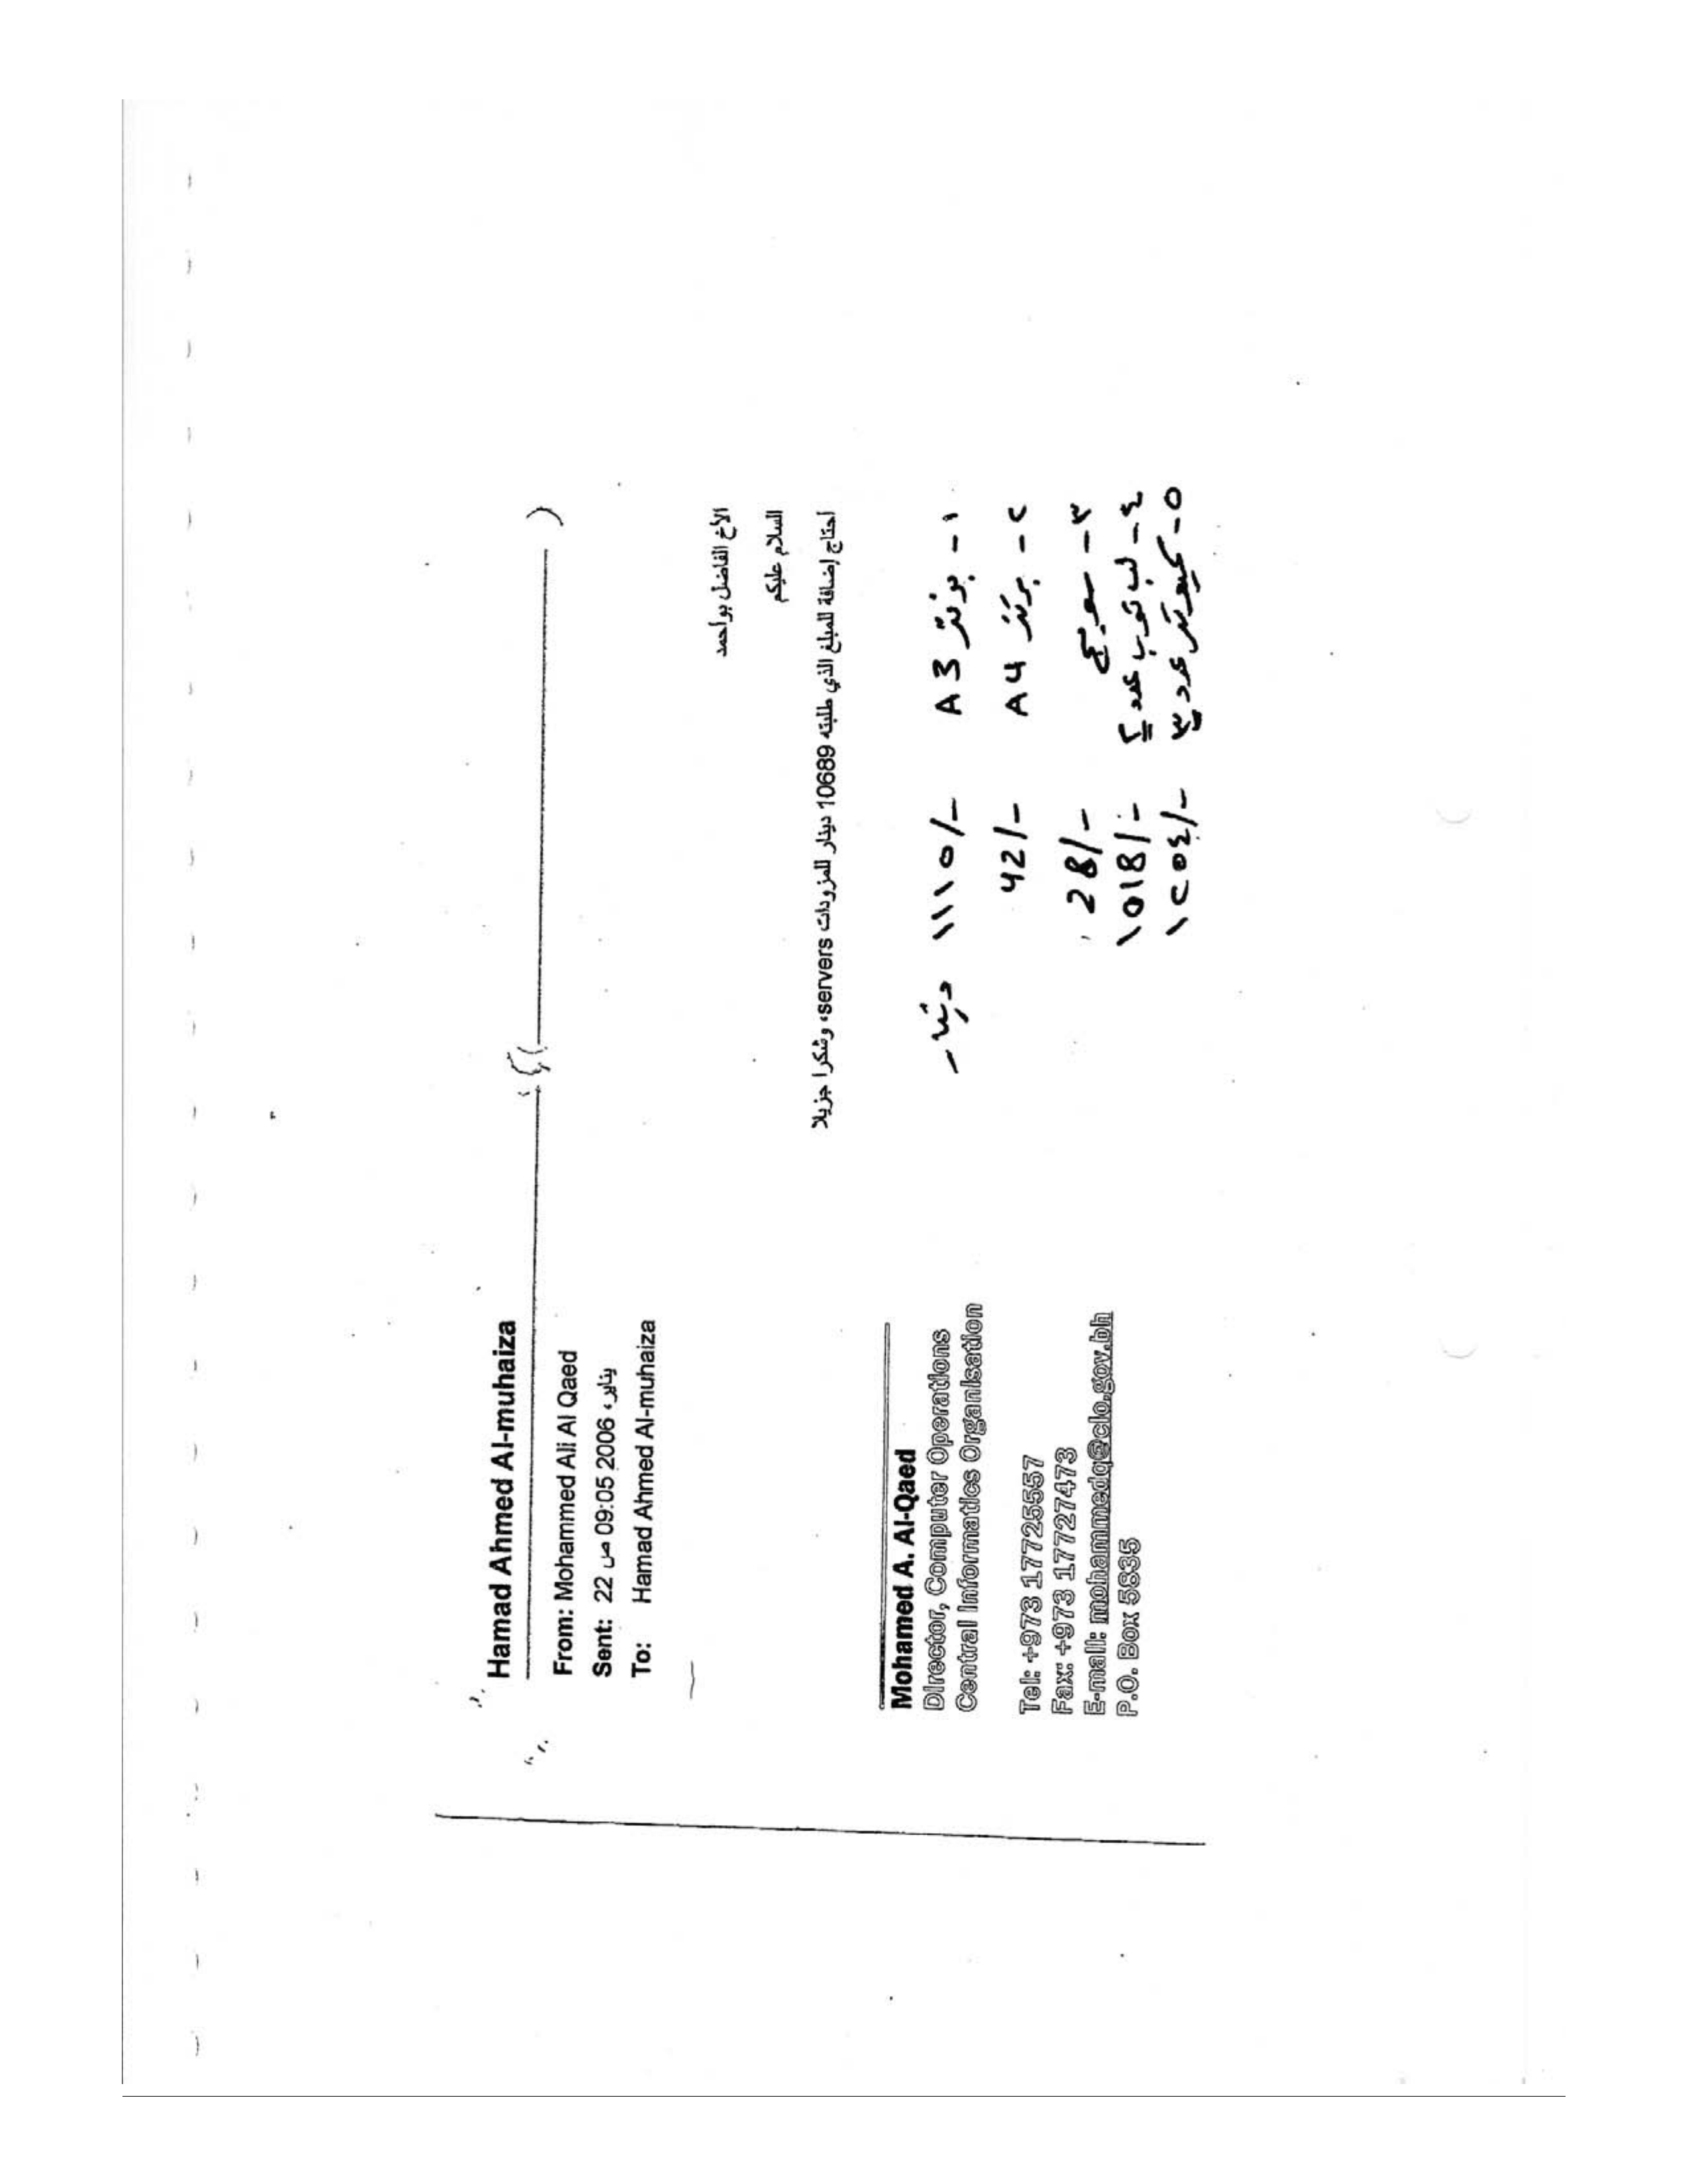 Hamad Ahmed Al-muhaiza
From: Mohammed Ali Al Qaed
Sent: 22 يناير، 2006 09:05 ص
To: Hamad Ahmed Al-muhaiza
الأخ الفاضل بواحمد
السلام عليكم
احتاج إضافة للمبلغ الذي طلبته 10689 دينار للمزودات servers، وشكرا جزيلا
Mohamed A. Al-Qaed
Director, Computer Operations
Central Informatics Organisation
Tel: +973 17725557
Fax: +973 17727473
E-mail: mohammedq@cio.gov.bh
P.O. Box 5835
١- برنتر A3 ١١١٥/- دينار
٢- برنتر A4 42/-
٣- سويج 28/-
٤- لب توب عدد ٢ ١٥١8/-
٥- كمبيوتر عدد ٣ ١٢٥٤/-